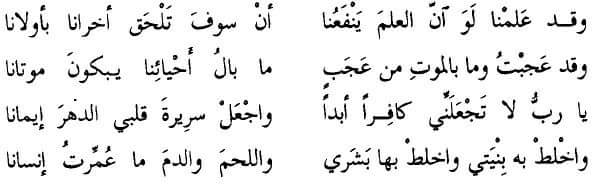 وقد عَلمْنا لَوَ آنّ العلمَ يَنْفَعُنا أنْ سوفَ تَلْحَق أخرانا بأولانا
وقد عَجبْتُ وما بالموتِ من عَجَبٍ ما بالُ أَحْيائِنا يبكونَ موتانا
يا ربُّ لا تَجْعَلَنِّي كافِراً أبداً واجْعَلْ سرِيرةَ قلبي الدهرَ إيمانا
واخْلطْ به بِنْيَتي واخلطْ بها بَشَري واللحمَ والدمَ ما عُمِّرتُ إنسانا